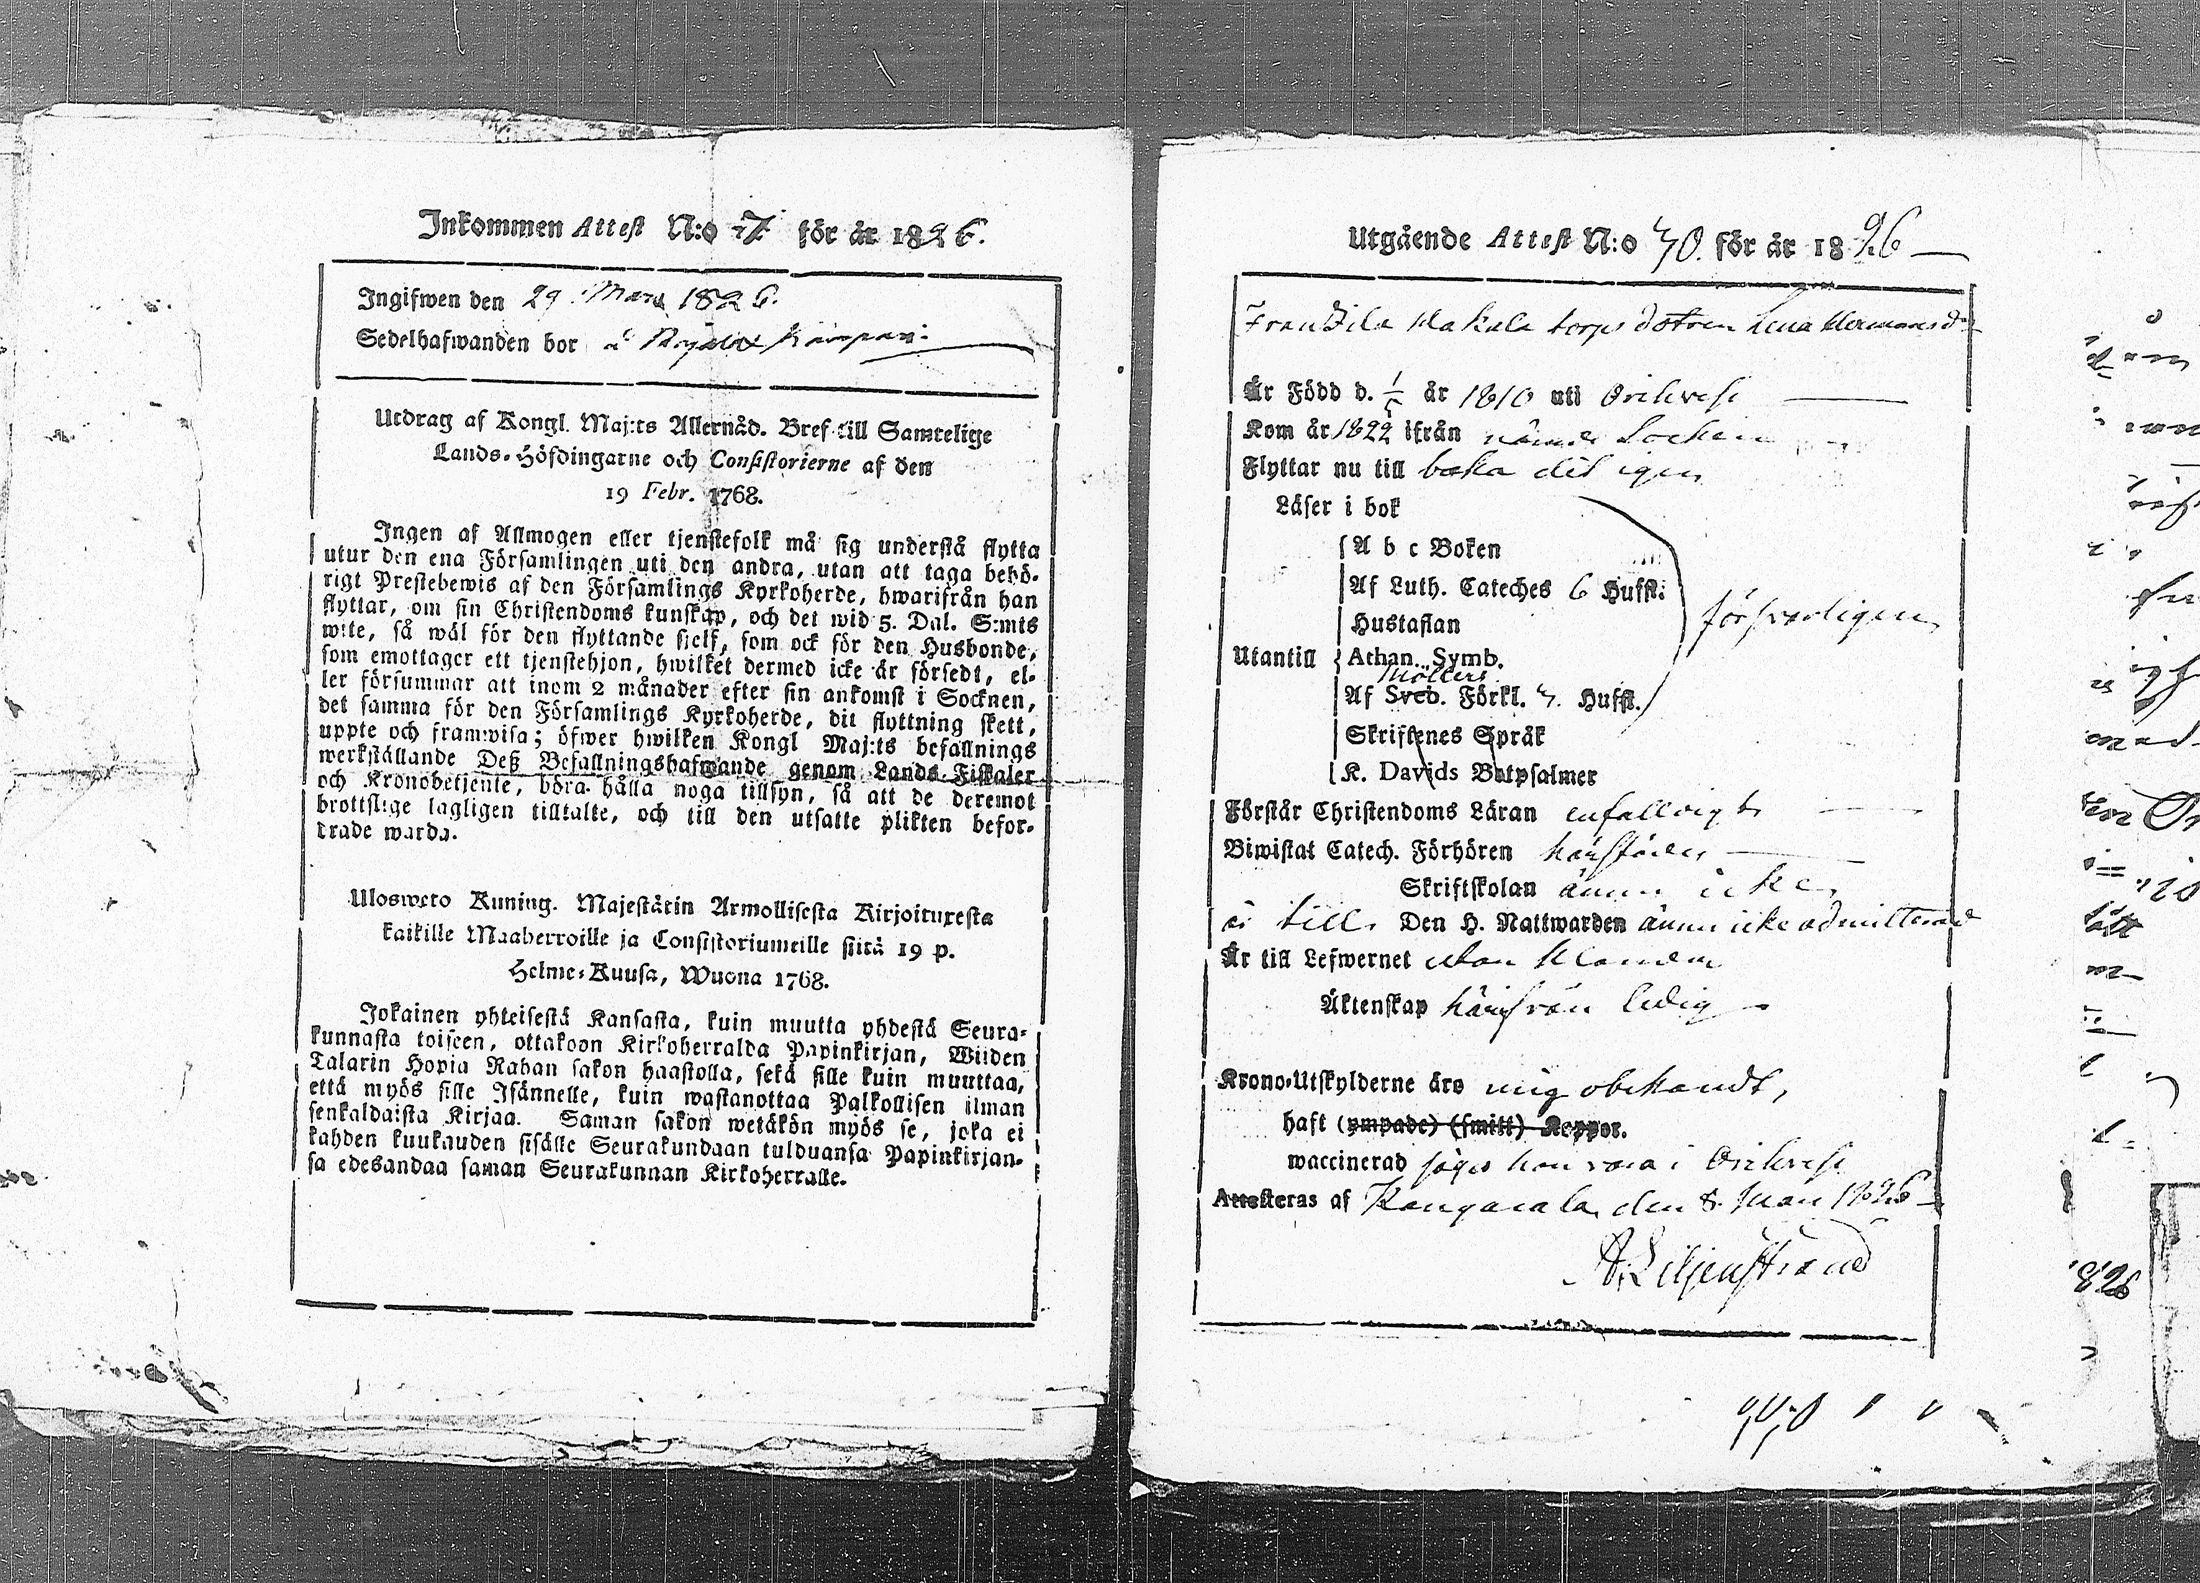 Inkommen Attest N:o 7 för år 1826.
Ingifwen den 29 Mars 1826.
Sedelhafwanden bor å
Utdrag af Kongl. Maj:ts Allernåd. Bref till Samtelige
Lands-Höfdingarne och Consistorierne af den
19 Febr. 1768.
Ingen af Allmogen eller tjenstefolk må sig understå flytta
utur den ena Församlingen uti den andra, utan att taga behö-
rigt Prestebewis af den Församlings Kyrkoherde, hwarifrån han
flyttar, om sin Christendoms kunskap, och det wid 5. Dal. S:mts
wite, så wäl för den flyttande sjelf, som ock för den Husbonde,
som emottager ett tjenstehjon, hwilket dermed icke är försedt, el-
ler försummar att inom 2 månader efter sin ankomst i Socknen,
det samma för den Församlings Kyrkoherde, dit flyttning skett,
uppte och framwisa; öfwer hwilken Kongl Maj:ts befallnings
werkställande Deß Befallningshafwande genom Lands-Fiskaler
och Kronobetjente, böra hålla noga tillsyn, så att de deremot
brottslige lagligen tilltalte, och till den utsatte plikten befor-
drade warda.
Ulosweto Kuning. Majestätin Armollisesta Kirjoituxesta
kaikille Maaherroille ja Consistoriumeille siitä 19 p.
Helme-Kuusa, Wuona 1768.
Jokainen yhteisestä Kansasta, kuin muutta yhdestä Seura-
kunnasta toiseen, ottakoon Kirkoherralda Papinkirjan, Wiiden
Talarin Hopia Rahan sakon haastolla, sekä sille kuin muuttaa,
että myös sille Isännelle, kuin wastanottaa Palkollisen ilman
senkaldaista Kirjaa. Saman sakon wetäkön myös se, joka ei
kahden kuukauden sisälle Seurakundaan tulduansa Papinkirjan-
sa edesandaa saman Seurakunnan Kirkoherralle.
Utgående Attest N:o 70. för år 1826
Från Zila Makala torps dotren Lena Hermansdr
Är Född d. 1/5 år 1810 uti Orihvesi
Kom år 1822 ifrån nämde Socken
Flyttar nu till baka dit igen
Läser i bok
A b c Boken
Af Luth. Cateches 6 Hufst.
Hustaflan
försvarligen
Utantill Athan. Symb.
Möllers
Af Sveb. Förkl. 7. Hufst.
Skriftenes Språk
K. Davids Botpsalmer
Förstår Christendoms Läran enfalldigt
Biwistat Catech. Förhören härstädes
Skriftskolan ännu icke
är till Den H. Nattwarden ännu icke admitterad
Är till Lefwernet utan klander
Äktenskap härifrån ledig
Krono-Utskylderne äro mig obekandt,
haft (ympade) (smitt) Koppor.
waccinerad säges hon vara i Orihvesi
Attesteras af Kangasala den 8. Mars 1826
A. Liljenstrand